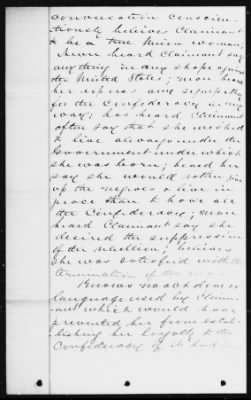 conversation conscien-
tiously believes Claimant
to be a true Union woman
Never heard Claimant say
anything in any shape against
the United States; never heard
her express any sympathy
for the Confederacy in any
way; has heard Claimant
often say that she wished
to live always under the
Government under which
she was born; heard her
say she would rather give
up the negroes & live in
peace than to have all
the Confederacy; never
heard Claimant say she
desired the suppression
of the rebellion; believes
she was satisfied with the
termination of the war.
Knows no act done or
language used by Claim-
ant which would have
prevented her from estab-
lishing her loyalty to the
Confederacy if it had